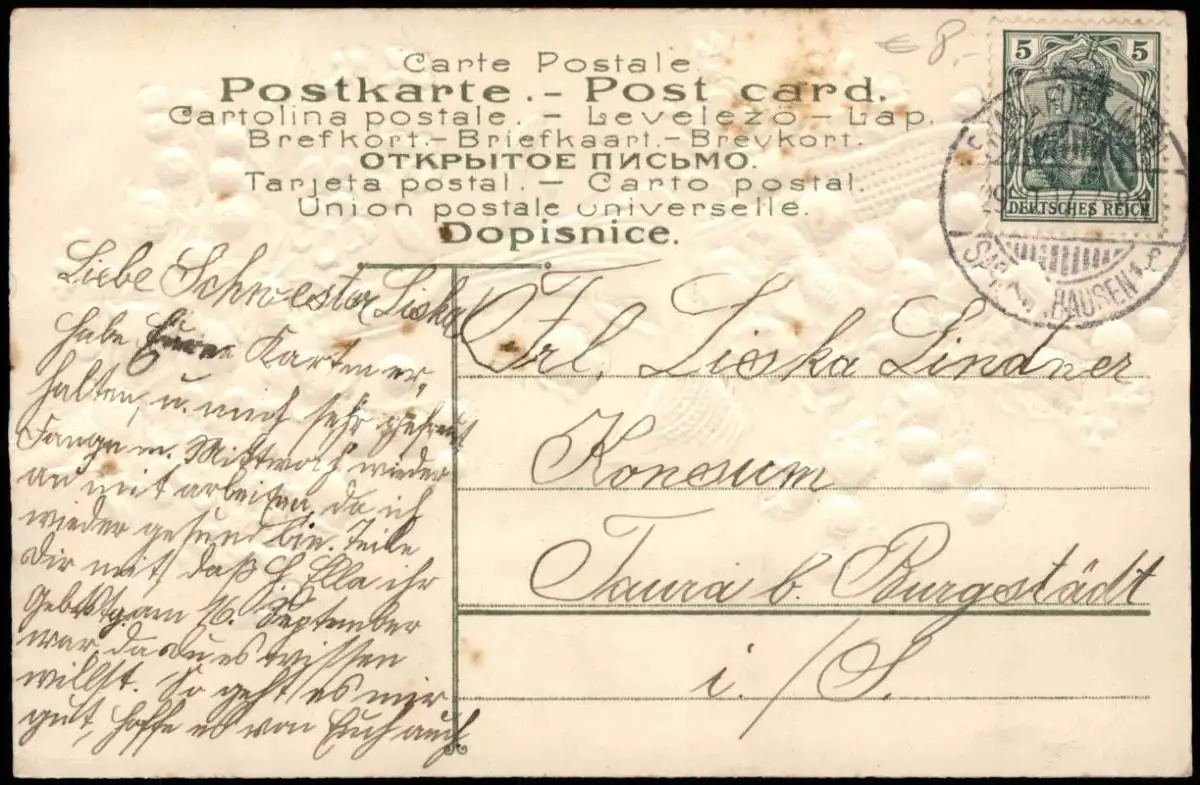 Carte Postale.
Postkarte. - Post card.
Cartolina postale. - Levelezö - Lap.
Brefkort. - Briefkaart. - Brevkort.
ОТКРЫТОЕ ПИСЬМО.
Tarjeta postal. - Carto postal.
Union postale universelle.
Dopisnice.
€ 8.-
5 5
DEUTSCHES REICH
29
HAUSEN
Liebe Schwester Liska
habe Eure Karten er-
halten, u. mich sehr gefreut
Fange m. Mittwoch wieder
an mit arbeiten, da ich
wieder gesund bin. Teile
Dir mit, daß Ella ihr
Gebtstg am 16. September
war, da du es wissen
willst. So geht es mir
gut, hoffe es von Euch auch
Frl. Liska Lindner
Konsum
Taura b. Burgstädt
i./S.